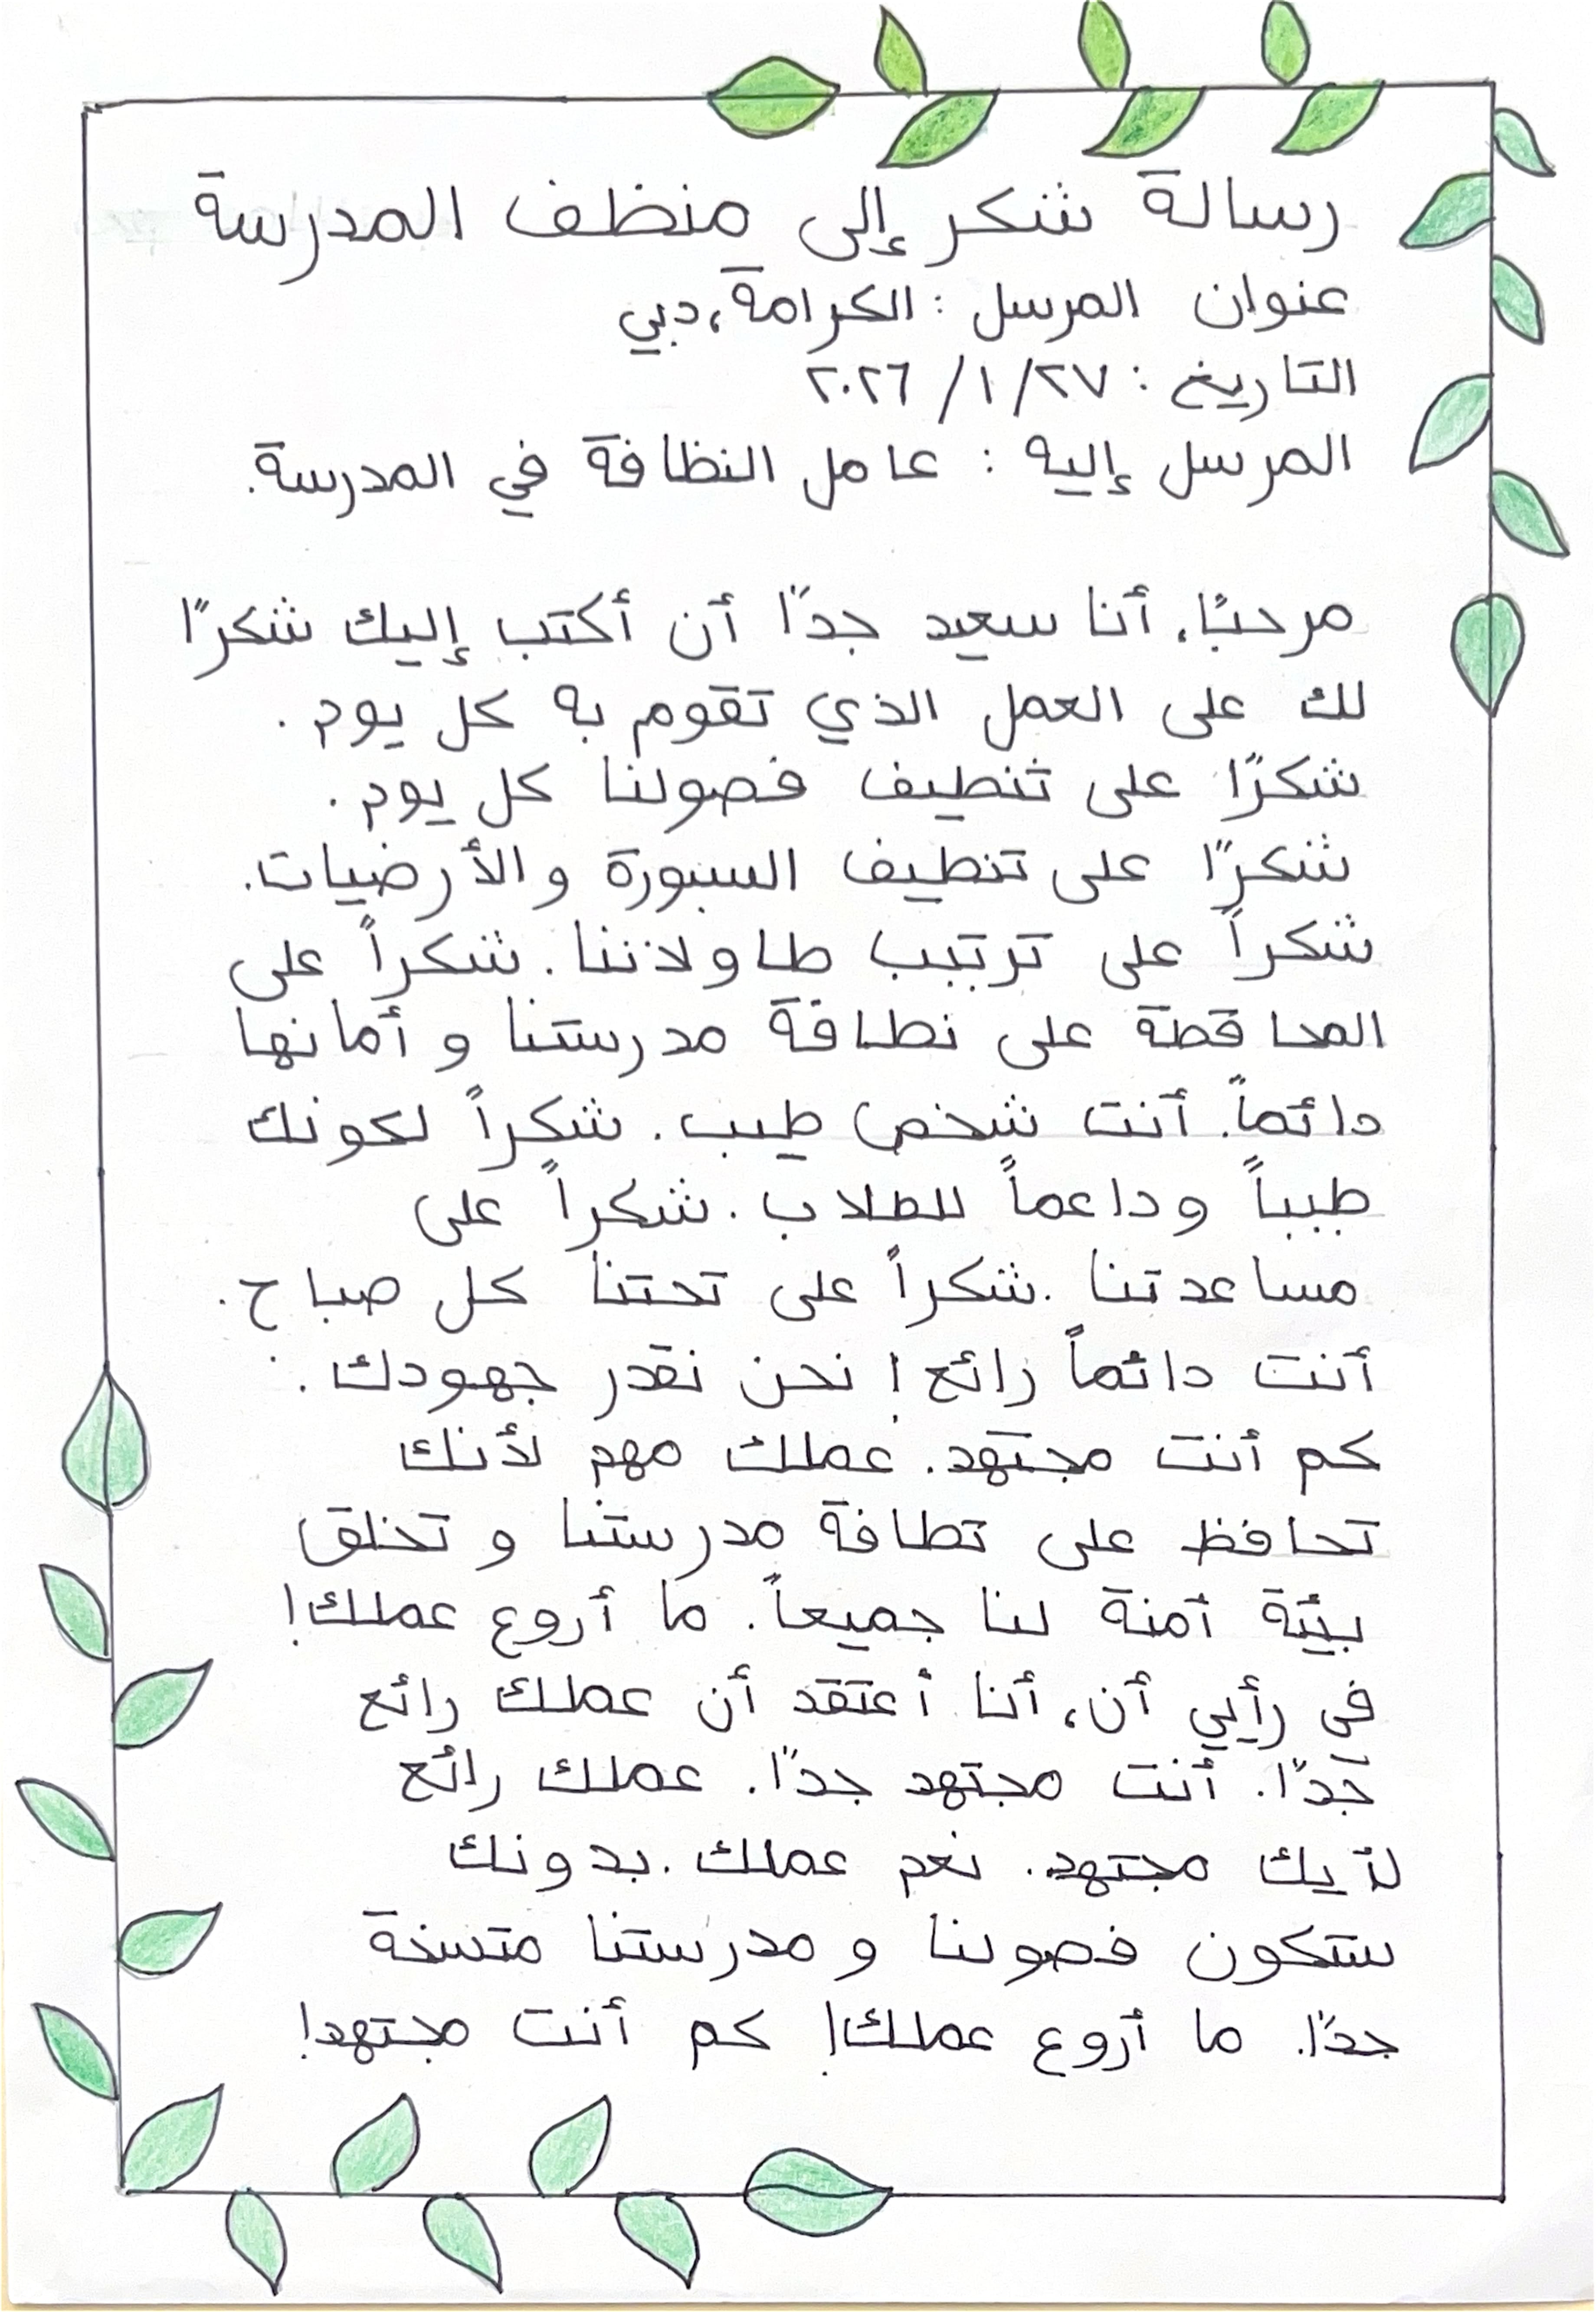 رسالة شكر إلى منظف المدرسة
عنوان المرسل : الكرامة، دبي
التاريخ : ٢٧/ ١/ ٢٠٢٦
المرسل إليه : عامل النظافة في المدرسة.
مرحبًا، أنا سعيد جدًا أن أكتب إليك شكرًا
لك على العمل الذي تقوم به كل يوم .
شكرًا على تنطيف فصولنا كل يوم .
شكرًا على تنطيف السبورة والأرضيات.
شكراً على ترتيب طاولاتنا. شكراً على
المحافطة على نطافة مدرستنا و أمانها
دائماً. أنت شخص طيب. شكراً لكونك
طيباً وداعماً للطلاب . شكراً على
مساعدتنا . شكراً على تحتنا كل صباح .
أنت دائماً رائع ! نحن نقدر جهودك .
كم أنت مجتهد. عملك مهم لأنك
تحافظ على تطافة مدرستنا و تخلق
بيئة آمنة لنا جميعاً. ما أروع عملك!
في رأيي أن، أنا أعتقد أن عملك رائع
جدًا. أنت مجتهد جدًا. عملك رائع
مجتهد. نعم عملك . بدونك
ستكون فصولنا و مدرستنا متسخة
جدًا. ما أروع عملك! كم أنت مجتهد!